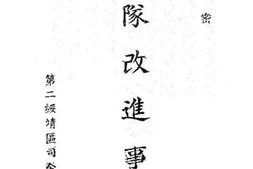 密
隊改進事
第二綏靖區司